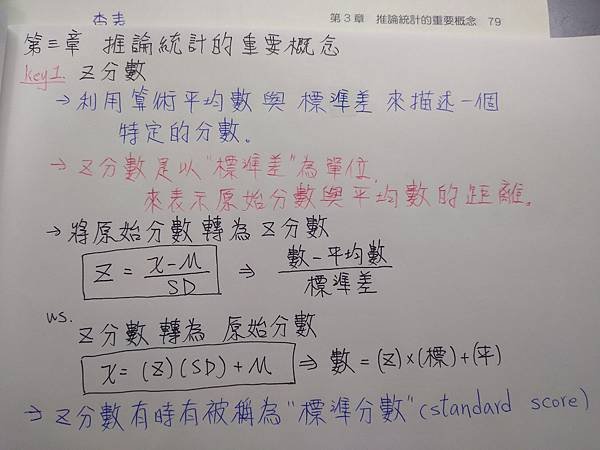 查表
第3章 推論統計的重要概念 79
第三章 推論統計的重要概念
key1. Z分數
→利用算術平均數與標準差來描述一個
特定的分數。
→Z分數是以"標準差"為單位,
來表示原始分數與平均數的距離。
→將原始分數轉為Z分數
Z = x-M / SD ⇒ 數-平均數 / 標準差
us.
Z分數轉為原始分數
x = (Z)(SD)+M ⇒ 數=(Z)×(標)+(平)
→Z分數有時有被稱為"標準分數"(standard score)